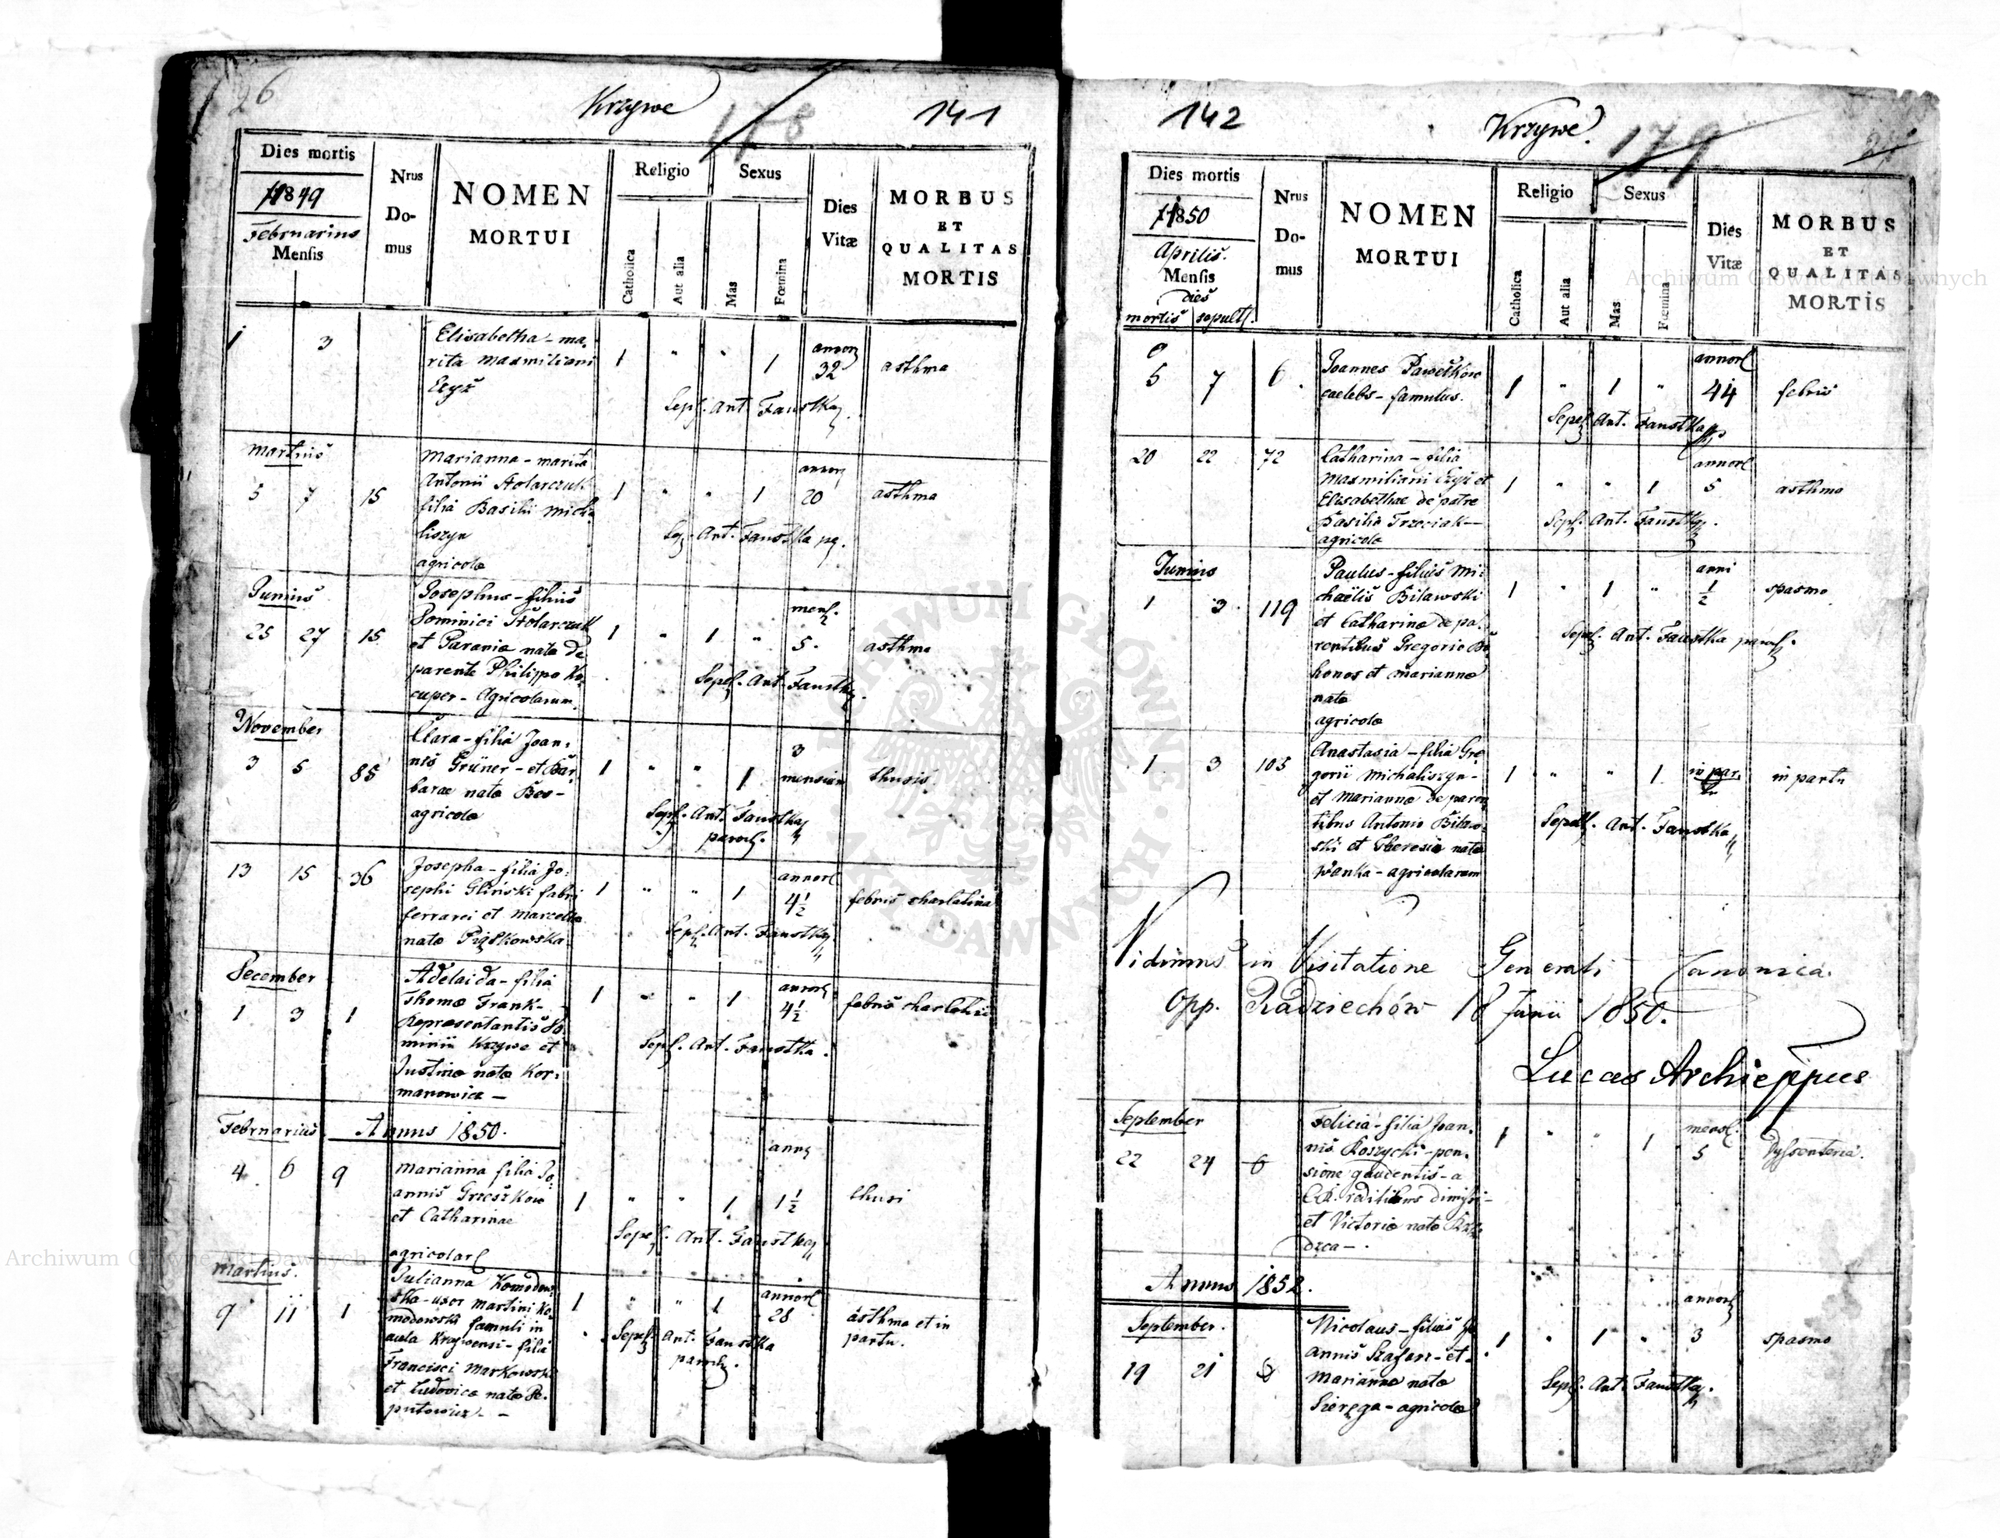 26
Krzywe
178
141
Dies mortis
1849
Februarius
Mensis
Nrus Domus
NOMEN
MORTUI
Religio
Catholica
Aut alia
Sexus
Mas
Fœmina
Dies Vitæ
MORBUS
ET
QUALITAS
MORTIS
1 3
Elisabetha - ma-
rita Maxmiliani
Czyż
1 " " 1
annor
32
asthma
Sepel. Ant. Faustka
Martius
5 7 15
Marianna - marita
Antonii Stolarczuk
filia Basilii Micha-
liszyn
agricolæ
1 " " 1
annor
20
asthma
Sep. Ant. Faustka
Junius
25 27 15
Josephus - filius
Dominici Stolarczuk
et Parania nata de
parente Philippo Ko-
cuper - Agricolarum.
1 " 1 "
mens.
5.
asthma
Sepel. Ant. Faustka
November
3 5 85
Clara - filia Joan-
nis Grüner - et Bar-
baræ nata Bos -
agricolæ
1 " " 1
3
mensium
thusis
Sepel. Ant. Faustka
paroch.
13 15 36
Josepha - filia Jo-
sephi Gliński fabri
ferrarei et Marcella
nata Piątkowska
1 " " 1
annor
4 1/2
febris charlatina
Sepel. Ant. Faustka
December
1 3 1
Adelaida - filia
Thomæ Frank -
Repræsentantis Do-
minii Krzywe et
Justina nata Kor-
manowicz -
1 " " 1
annor
4 1/2
Sepel. Ant. Faustka.
Annus 1850.
Februarius
4 6 9
Marianna filia Jo-
annis Grzeszkow
et Catharinae
agricolar
1 " " 1
annor
1 1/2
thusi
Sepel. Ant. Faustka
Martius.
9 11 1
Julianna Komodow-
ska - uxor Martini Ko-
modowski famuli in
aula Krzywensi - filia
Francisci Markowski
et Ludovica nata De-
putowicz. -
1 " " 1
annor
28
asthma et in
partu.
Sepel. Ant. Faustka
paroch.
142
Krzywe.
179
Dies mortis
1850
Aprilis.
Mensis
dies
mortis sepult.
Nrus Domus
NOMEN
MORTUI
Religio
Catholica
Aut alia
Sexus
Mas
Fœmina
Dies Vitæ
MORBUS
ET
QUALITAS
MORTIS
5 7 6.
Joannes Pawełkow
caelebs - famulus.
1 " 1 "
annor
44
febris
Sepel. Ant. Faustka
20 22 72
Catharina - filia
Maxmiliani Czyż et
Elisabethæ de patre
Basilio Trzeciak -
agricolæ
1 " " 1
annor
5
asthma
Sepel. Ant. Faustka.
Junius
1 3 119
Paulus - filius Mi-
chaëlis Bilawski
et Catharina de pa-
rentibus Gregorio Bo-
honos et Marianna
nata
agricolæ
1 " 1 "
anni
1/2
spasmo
Sepel. Ant. Faustka paroch.
1 3 105
Anastasia - filia Gre-
gorii Michaliszyn -
et Marianna de paren-
tibus Antonio Bilaw-
ski et Theresia nata
Wanka - agricolarum
1 " " 1
in par-
tu
in partu
Sepel. Ant. Faustka
Vidimus in Visitatione Generali Canonica.
Opp. Radziechów 18 Junii 1850.
Lucas Archieppus
September
22 24 6
Felicia - filia Joan-
nis Koszycki - pen-
sione gaudentis - a
et Victoria nata
1 " " 1
5
Dyssenteria.
Annus 1852.
September.
19 21 6
Nicolaus - filius Jo-
annis Szafarz - et
Marianna nata
Szeręga - agricolæ
1 " 1 "
annor
3
spasmo
Sepel. Ant. Faustka.
Archiwum Główne Akt Dawnych
Archiwum Główne Akt Dawnych
ARCHIWUM GŁÓWNE AKT DAWNYCH